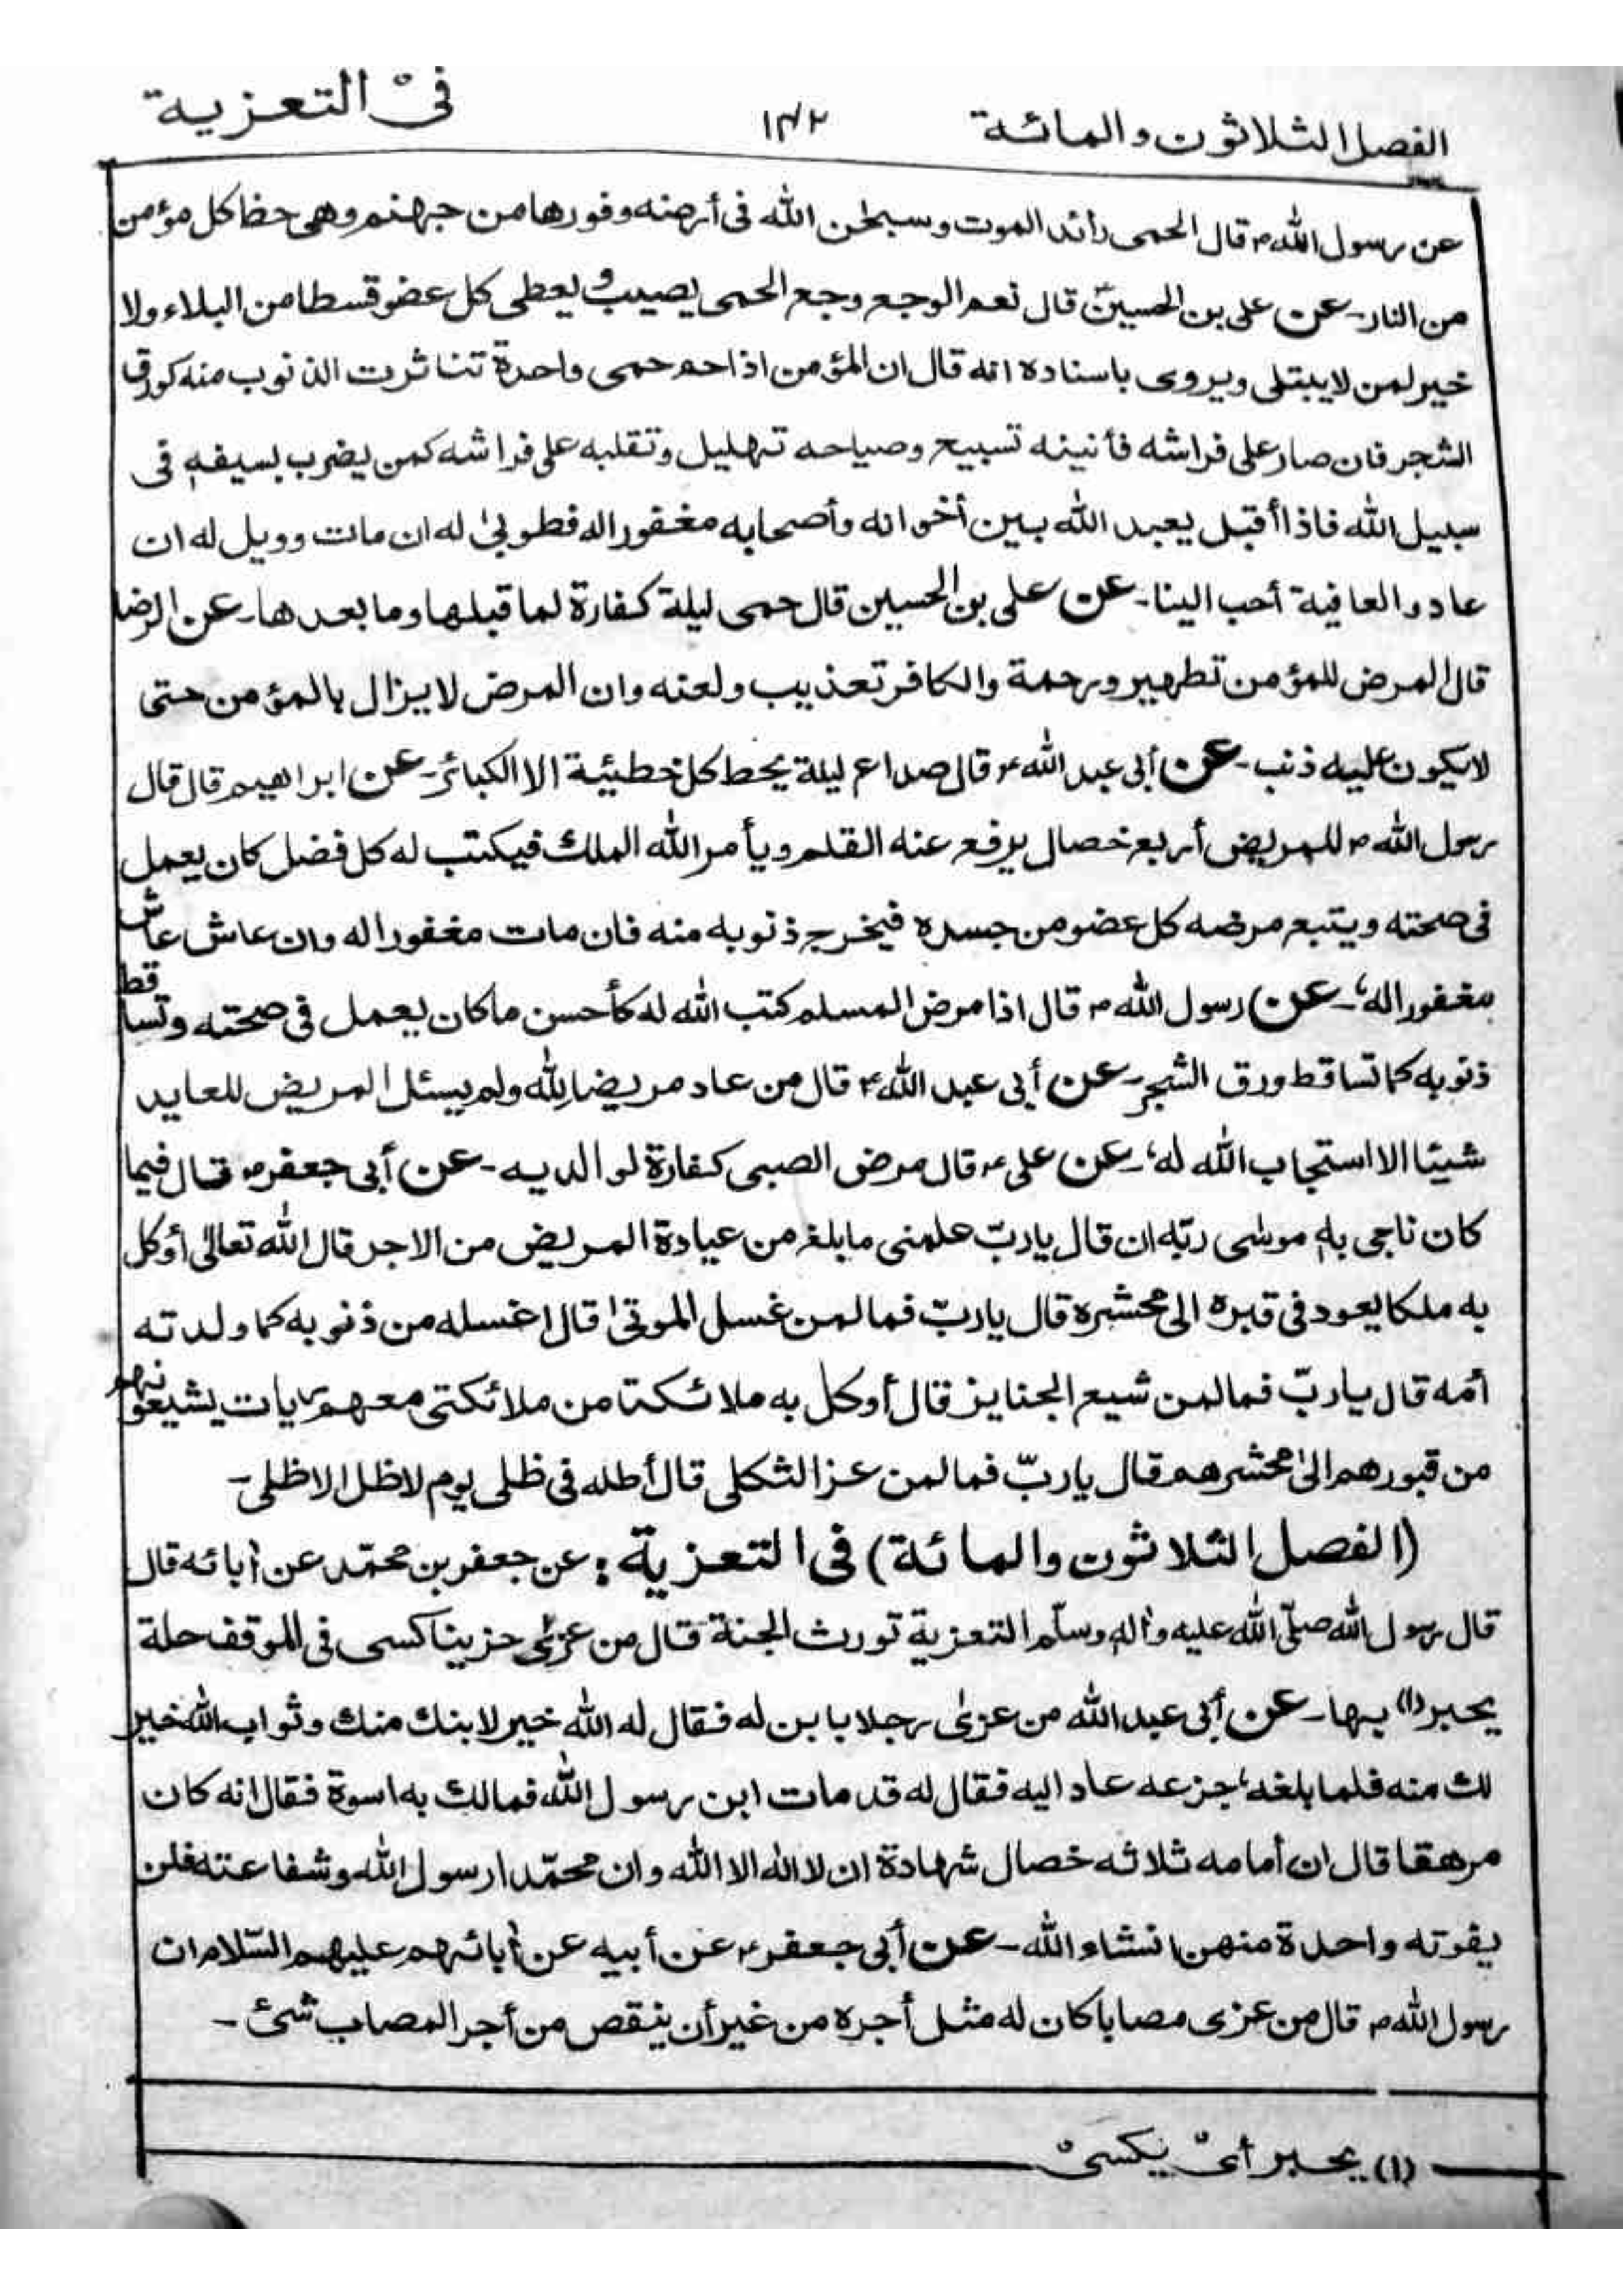 الفصل الثلاثون والمائة ١٤٢ فى التعزية
عن رسول الله ص قال الحمى رائد الموت وسجن الله فى أرضه وفورها من جهنم وهى حظ كل مؤمن
من النار۔ عن على بن الحسينؑ قال نعم الوجع وجع الحمى يصيب و يعطى كل عضو قسطا من البلاء ولا
خير لمن لا يبتلى ويروى باسناده انه قال ان المؤمن اذا حم حمى واحدة تناثرت الذنوب منه كورق
الشجر فان صار على فراشه فأنينه تسبيح وصياحه تهليل وتقلبه على فراشه كمن يضرب بسيفه فى
سبيل الله فاذا أقبل يعبد الله بين أخوانه وأصحابه مغفورا له فطوبىٰ له ان مات وويل له ان
عاد والعافية أحب الينا۔ عن على بن الحسين قال حمى ليلة كفارة لما قبلها وما بعدها۔ عن الرضا
قال المرض للمؤمن تطهير ورحمة والكافر تعذيب ولعنه وان المرض لا يزال بالمؤمن حتى
لا يكون عليه ذنب۔ عن أبى عبد الله ع قال صداع ليلة يحط كل خطيئية الا الكبائر۔ عن ابراهيم قال قال
رسول الله ص للمريض أربع خصال يرفع عنه القلم ويأمر الله الملك فيكتب له كل فضل كان يعمل
فى صحته ويتبع مرضه كل عضو من جسده فيخرج ذنوبه منه فان مات مغفورا له وان عاش عاش
مغفورا له۔ عن رسول الله ص قال اذا مرض المسلم كتب الله له كأحسن ما كان يعمل فى صحته وتساقط
ذنوبه كما تساقط ورق الشجر۔ عن أبى عبد الله ع قال من عاد مريضا لله ولم يسئل المريض للعايد
شيئا الا استجاب الله له۔ عن على ع قال مرض الصبى كفارة لوالديه۔ عن أبى جعفر ع قال فيما
كان ناجى به موسى ربّه ان قال يا ربّ علمنى ما بلغ من عيادة المريض من الاجر قال الله تعالىٰ أوكل
به ملكا يعود فى قبره الى محشره قال يا ربّ فما لمن غسل الموتىٰ قال اغسله من ذنوبه كما ولدته
أمه قال يا ربّ فما لمن شيع الجنايز قال أوكل به ملائكة من ملائكتى معهم رايات يشيعونهم
من قبورهم الىٰ محشرهم قال يا ربّ فما لمن عز الثكلى قال أظله فى ظلى يوم لا ظل الا ظلى۔
(الفصل الثلاثون والمائة) فى التعزية: عن جعفر بن محمّد عن اٰبائه قال
قال رسول الله صلّى الله عليه واٰله وسلّم التعزية تورث الجنة قال من عزىٰ حزينا كسى فى الموقف حلة
يحبر(١) بها۔ عن أبى عبد الله من عزىٰ رجلا بابن له فقال له الله خير لابنك منك وثواب الله خير
لك منه فلما بلغه جزعه عاد اليه فقال له قد مات ابن رسول الله فمالك به اسوة فقال انه كان
مرهقا قال ان أمامه ثلاثه خصال شهادة ان لا اله الا الله وان محمّدا رسول الله وشفاعته فلن
يفوته واحدة منهن انشاء الله۔ عن أبى جعفر ع عن أبيه عن اٰبائهم عليهم السّلام ان
رسول الله ص قال من عزى مصابا كان له مثل أجره من غير أن ينقص من أجر المصاب شئ۔
(١) يحبر أىْ يكسىْ